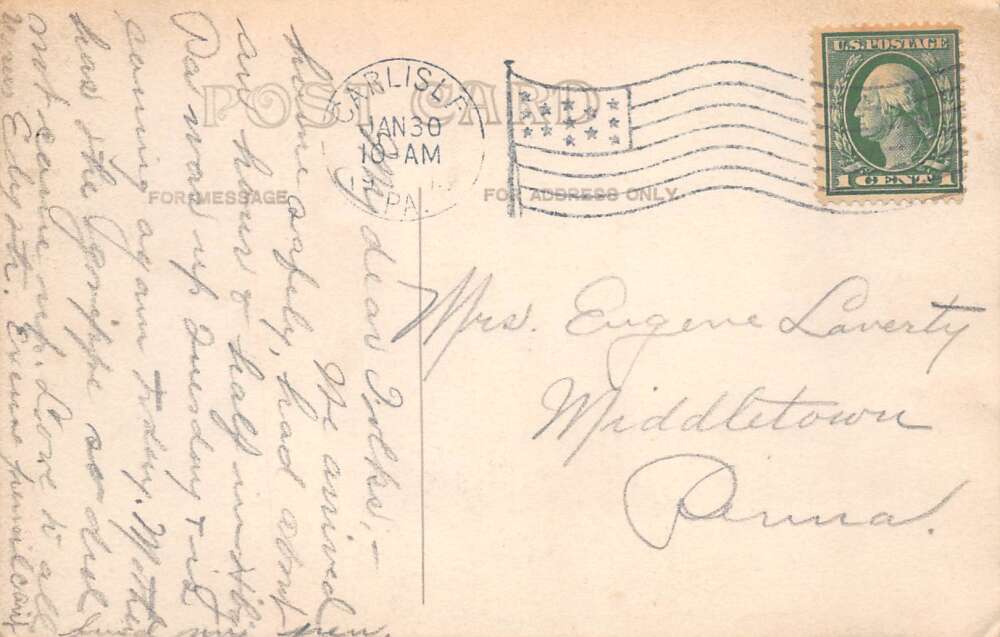 POST CARD
CARLISLE
JAN 30
10-AM
PA.
U.S. POSTAGE
1 CENT 1
FOR MESSAGE
FOR ADDRESS ONLY
My dear Folks:-
We arrived
home safely, had about
an hour & half in
Da was up Tuesday & is
coming again today. Mother
has the Grippe so did
not come up. Love to all
Excuse pencil can't
find my pen.
Mrs. Eugene Laverty
Middletown
Penna.